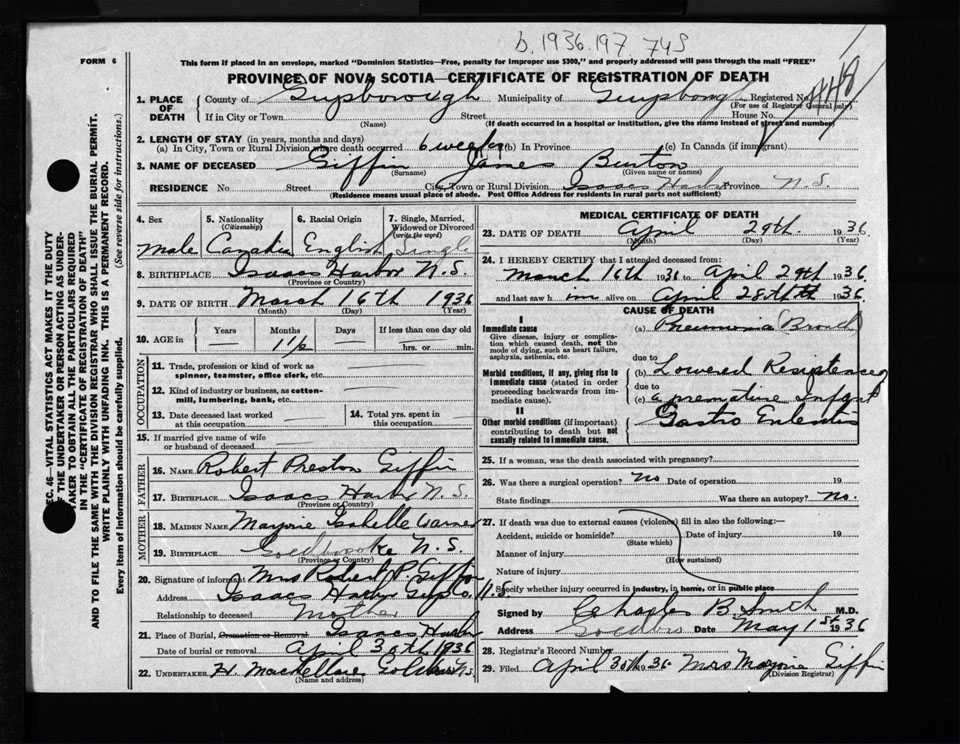 b. 1936.197 745
FORM 6
This form if placed in an envelope, marked "Dominion Statistics—Free, penalty for improper use $300," and properly addressed will pass through the mail "FREE"
PROVINCE OF NOVA SCOTIA—CERTIFICATE OF REGISTRATION OF DEATH
1. PLACE OF DEATH County of Guysborough Municipality of Guysborough Registered No.
(For use of Registrar General only)
If in City or Town Street House No.
(Name) (If death occurred in a hospital or institution, give the name instead of street and number)
2. LENGTH OF STAY (in years, months and days)
(a) In City, Town or Rural Division where death occurred 6 weeks (b) In Province (c) In Canada (if immigrant)
3. NAME OF DECEASED Giffin James Burton
(Surname) (Given name or names)
RESIDENCE No Street City, Town or Rural Division Isaacs Harbor Province N.S.
(Residence means usual place of abode. Post Office Address for residents in rural parts not sufficient)
4. Sex 5. Nationality (Citizenship) 6. Racial Origin 7. Single, Married, Widowed or Divorced (write the word)
male Canadian English Single
8. BIRTHPLACE Isaacs Harbor N.S.
(Province or Country)
9. DATE OF BIRTH March 16th 1936
(Month) (Day) (Year)
10. AGE in Years Months Days If less than one day old
1 1/2 hrs. or min.
OCCUPATION
11. Trade, profession or kind of work as spinner, teamster, office clerk, etc.
12. Kind of industry or business, as cotton-mill, lumbering, bank, etc.
13. Date deceased last worked at this occupation 14. Total yrs. spent in this occupation
15. If married give name of wife or husband of deceased
FATHER
16. NAME Robert Preston Giffin
17. BIRTHPLACE Isaacs Harbor N.S.
(Province or Country)
MOTHER
18. MAIDEN NAME Marjorie Isabelle
19. BIRTHPLACE N.S.
(Province or Country)
20. Signature of informant Mrs Robert P. Giffin
Address Isaacs Harbor Guys. Co. N.S.
Relationship to deceased Mother
21. Place of Burial, Cremation or Removal Isaacs Harbor
Date of burial or removal April 30th 1936
22. UNDERTAKER N.S.
(Name and address)
MEDICAL CERTIFICATE OF DEATH
23. DATE OF DEATH April 29th. 1936
(Month) (Day) (Year)
24. I HEREBY CERTIFY that I attended deceased from:
March 16th 1936 to April 29th 1936
and last saw h im alive on April 28th 1936
CAUSE OF DEATH
I
Immediate cause (a) Pneumonia
Give disease, injury or complication which caused death, not the mode of dying, such as heart failure, asphyxia, asthenia, etc.
due to
Morbid conditions, if any, giving rise to immediate cause (stated in order proceeding backwards from immediate cause). (b) Lowered Resistence
due to
(c) a premature Infant
II
Other morbid conditions (if important) contributing to death but not causally related to immediate cause. Gastro
25. If a woman, was the death associated with pregnancy?
26. Was there a surgical operation? No Date of operation 19
State findings Was there an autopsy? no.
27. If death was due to external causes (violence) fill in also the following:—
Accident, suicide or homicide? Date of injury 19
(State which)
Manner of injury
(How sustained)
Nature of injury
Specify whether injury occurred in industry, in home, or in public place
Signed by Charles B. Smith M.D.
Address Date May 1st 1936
28. Registrar's Record Number
29. Filed April 30th 1936 Mrs Marjorie Giffin
(Division Registrar)
SEC. 46—VITAL STATISTICS ACT MAKES IT THE DUTY
OF THE UNDERTAKER OR PERSON ACTING AS UNDER-
TAKER TO OBTAIN ALL THE PARTICULARS REQUIRED
IN THE "CERTIFICATE OF REGISTRATION OF DEATH"
AND TO FILE THE SAME WITH THE DIVISION REGISTRAR WHO SHALL ISSUE THE BURIAL PERMIT.
WRITE PLAINLY WITH UNFADING INK. THIS IS A PERMANENT RECORD.
Every item of information should be carefully supplied. (See reverse side for instructions.)